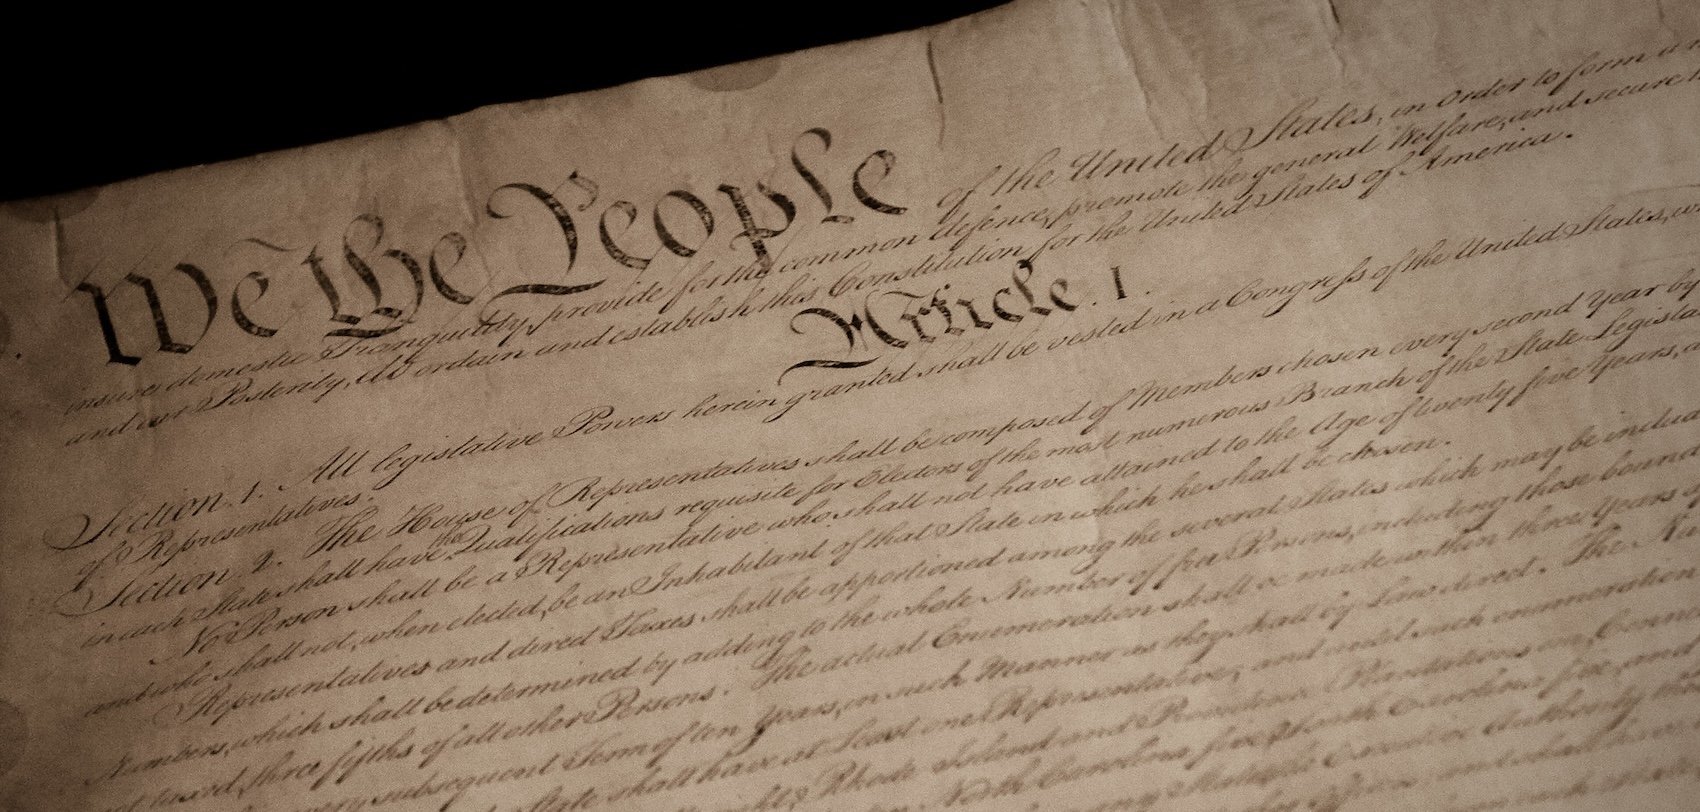 We the People of the United States, in Order to form a
insure domestic Tranquility, provide for the common defence, promote the general Welfare, and secure
and our Posterity, do ordain and establish this Constitution for the United States of America.
Article. I.
Section. 1. All legislative Powers herein granted shall be vested in a Congress of the United States,
of Representatives.
Section. 2. The House of Representatives shall be composed of Members chosen every second Year by
in each State shall have the Qualifications requisite for Electors of the most numerous Branch of the State
No Person shall be a Representative who shall not have attained to the Age of twenty five Years,
and who shall not, when elected, be an Inhabitant of that State in which he shall be chosen.
Representatives and direct Taxes shall be apportioned among the several States which may be
Numbers, which shall be determined by adding to the whole Number of free Persons, including those
three fifths of all other Persons. The actual Enumeration shall be made within three Years
subsequent Term of ten Years, in such Manner as they shall by Law direct. The
State shall have at Least one Representative; and until such enumeration
Rhode Island and Providence Plantations one,
North Carolina five, South Carolina five, and
Executive Authority